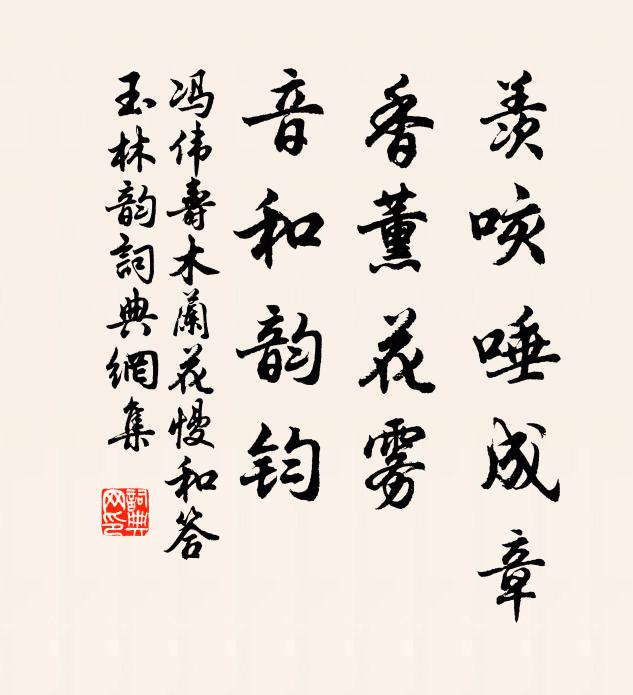 羡咳唾成章
香薰花雾
音和韵钧
冯伟寿木蘭花慢和答
玉林韵詞典網集
詞典网印